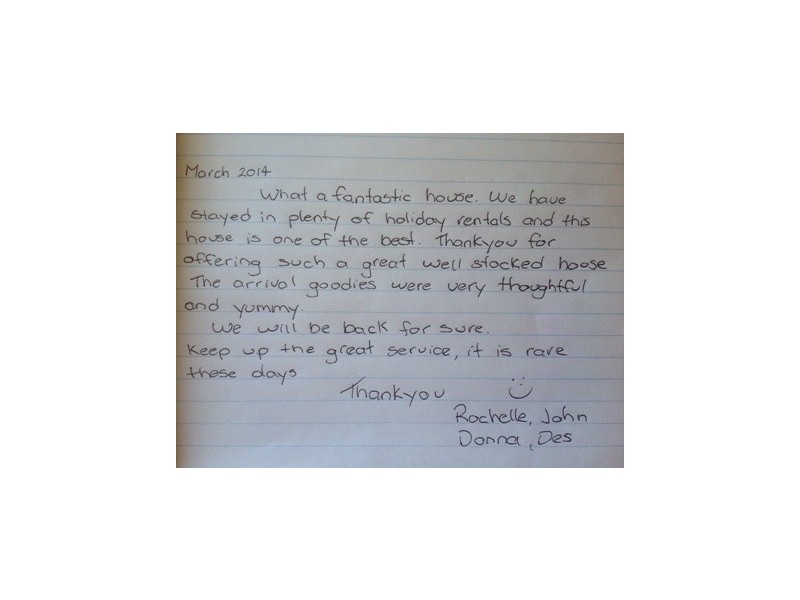 March 2014
What a fantastic house. We have
stayed in plenty of holiday rentals and this
house is one of the best. Thankyou for
offering such a great well stocked hoose
The arrival goodies were very thoughtful
and yummy.
We will be back for sure.
Keep up the great service, it is rare
these days
Thankyou
Rochelle, John
Donna, Des